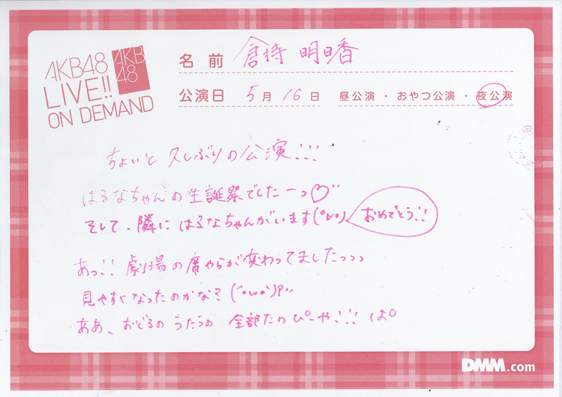 AKB48
LIVE!!
ON DEMAND
AKB
48
名前 倉持 明日香
公演日 5月16日 昼公演・おやつ公演・夜公演
ちょいと 久しぶりの公演!!!
はるなちゃんの生誕祭でしたーっ♡
そして、隣に はるなちゃんがいます(°v°) おめでとう!!
あっ!! 劇場の席やらが変わってましたっっっ
見やすくなったのかな? (°ω°)?
ああ、おどるの うたうの 全部たのぴーや!!! ぱ°
DMM.com